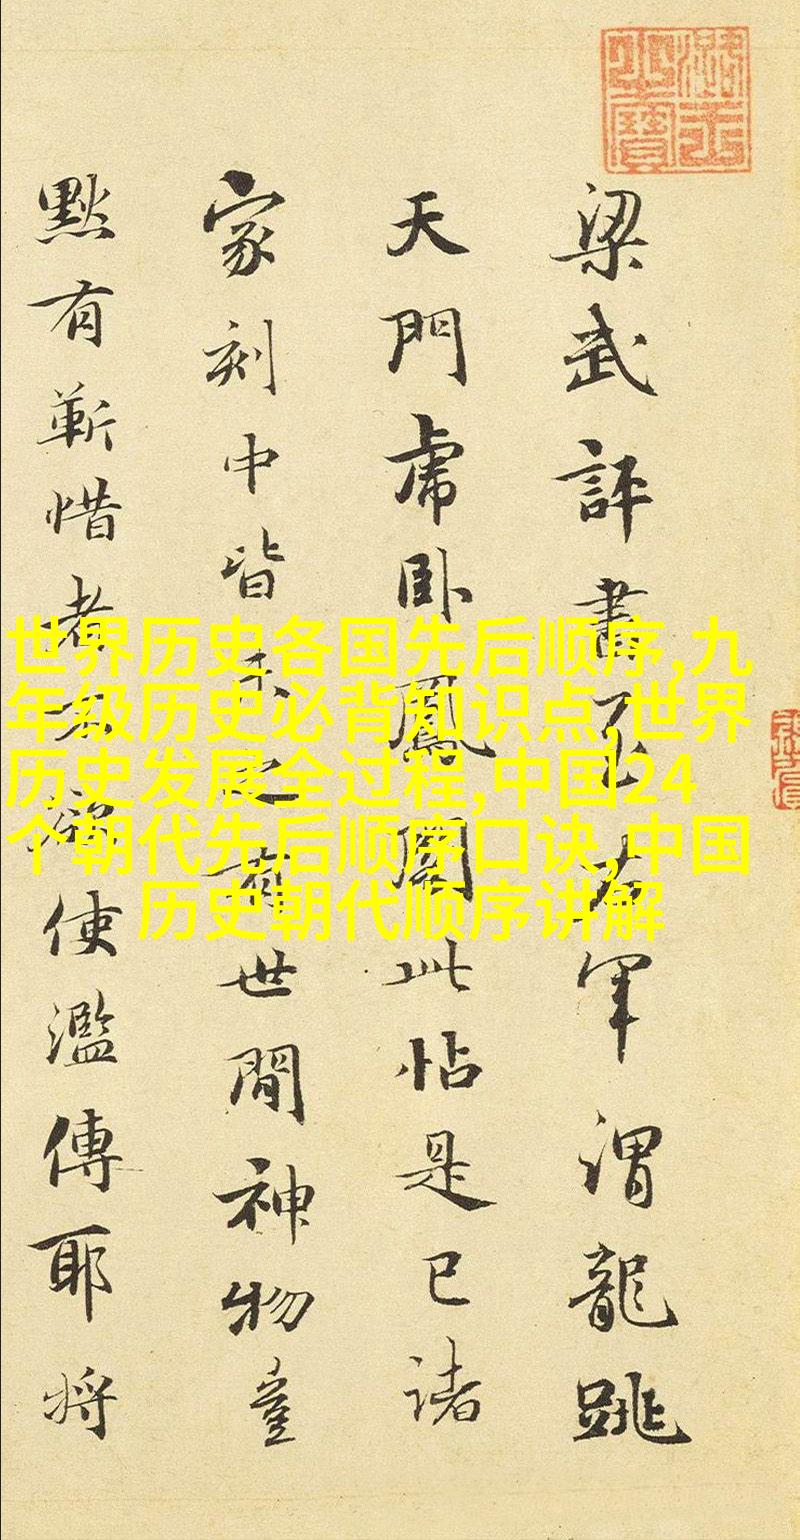 梁武評書右軍謂龍跳
天門虎卧鳳閣此帖是已諸
家刻中皆未之有世間神物豈
黙有靳惜者不欲使濫傳耶將
世界历史各国先后顺序,九
年级历史必背知识点,世界
历史发展全过程,中国24
个朝代先后顺序口诀,中国
历史朝代顺序讲解